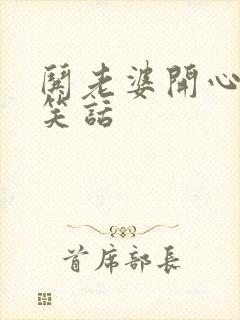 鬨老婆開心
笑話
首席部長